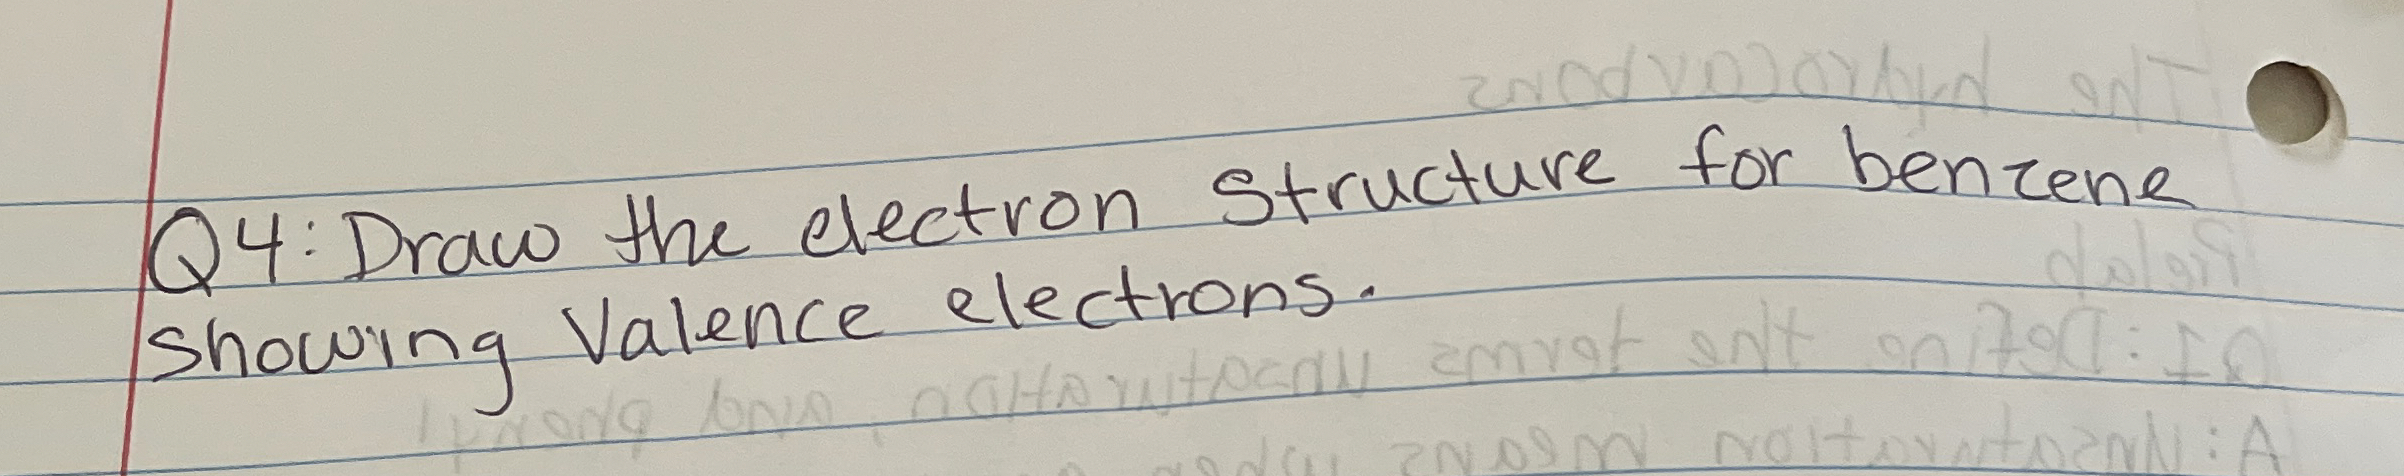 Q4: Draw the electron structure for benzene
showing valence electrons.